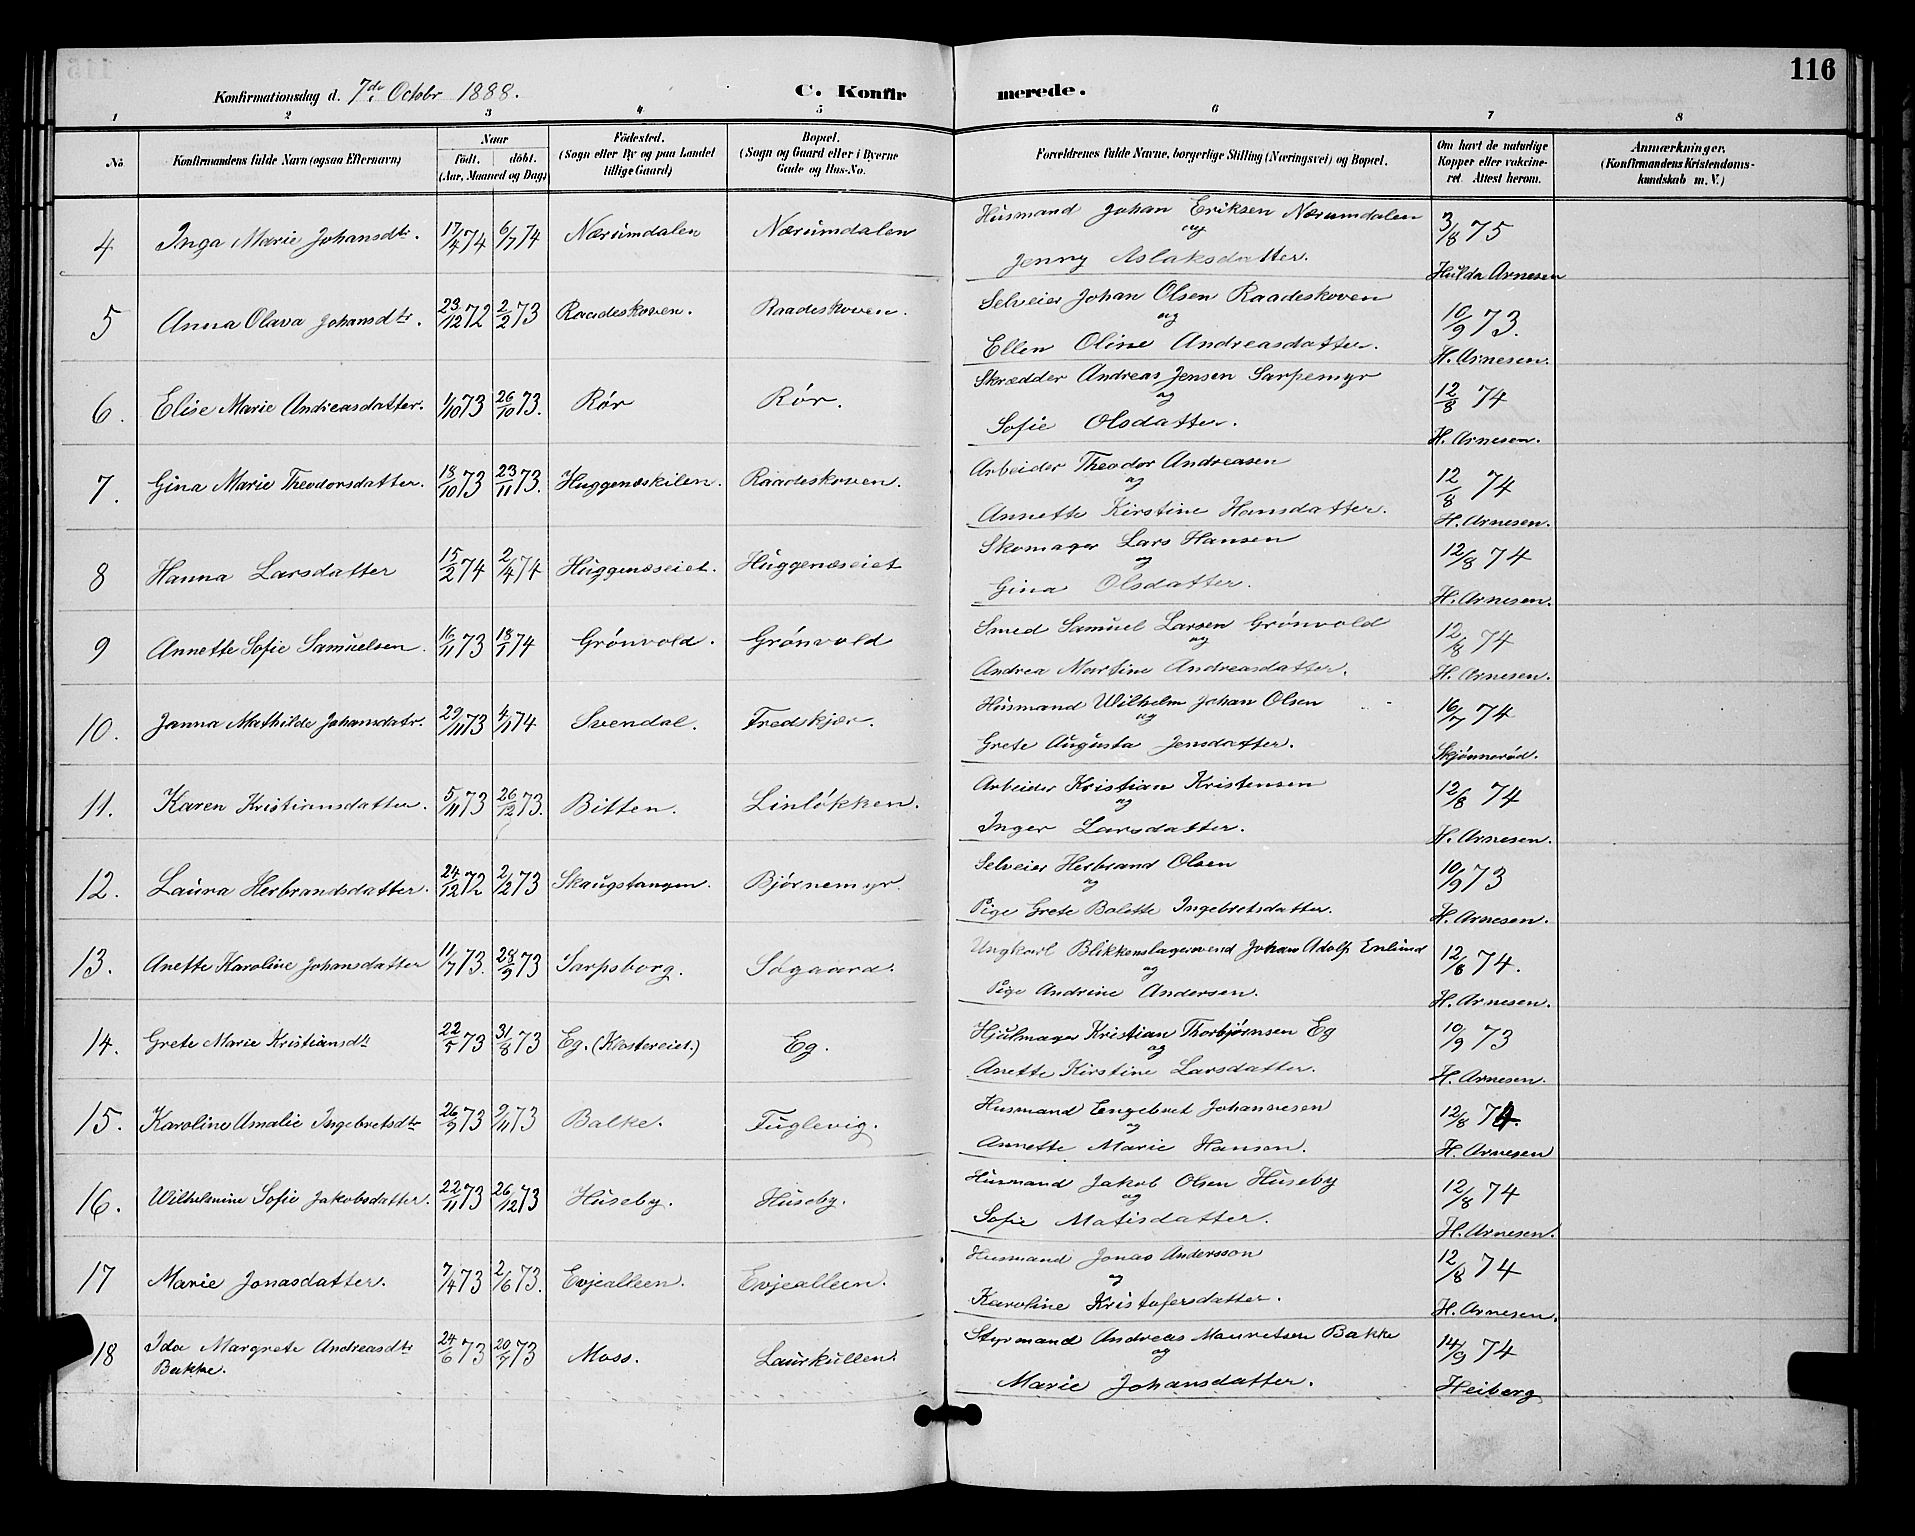 116
Konfirmationsdag d. 7de Octobr 1888. C. Konfirmerede.
1 2 3 4 5 6 7 8
No
Konfirmandens fulde Navn (ogsaa Efternavn)
Naar
Födt. döbt.
(Aar, Maaned og Dag)
Födested.
(Sogn eller By og paa Landet
tillige Gaard)
Bopæl.
(Sogn og Gaard eller i Byerne
Gade og Hus-No.
Forældrenes fulde Navne, borgerlige Stilling (Næringsvei) og Bopæl.
Om havt de naturlige
Kopper eller vakcine-
ret. Attest herom.
Anmærkninger.
(Konfirmandens Kristendoms-
kundskab m. V.)
4 Inga Marie Johansdtr. 17/4 74 6/7 74 Nærumdalen Nærumdalen Husmand Johan Eriksen Nærumdalen 3/8 75
og
Jenny Aslaksdatter. Hulda Arnesen
5 Anna Olava Johansdtr. 23/12 72 2/2 73 Raadeskoven. Raadeskoven. Selveier Johan Olsen Raadeskoven 10/9 73.
og
Ellen Oline Andreasdatter. H. Arnesen.
6. Elise Marie Andreasdatter. 1/10 73 26/10 73. Rör Rör. Skrædder Andreas Jensen Sarpemyr 12/8 74
og
Sofie Olsdatter. H. Arnesen.
7. Gina Marie Theodorsdatter. 18/10 73 23/11 73. Huggenæskilen. Raadeskoven. Arbeider Theodor Andreasen 12/8 74
og
Annette Kirstine Hansdatter. H. Arnesen.
8 Hanna Larsdatter 15/2 74 2/4 74 Huggenæseiet. Huggenæseiet Skomager Lars Hansen 12/8 74
og
Gina Olsdatter. H. Arnesen.
9 Annette Sofie Samuelsen. 16/11 73 18/1 74 Grönvold. Grönvold Smed Samuel Larsen Grönvold 12/8 74
og
Andrea Martine Andreasdatter. H. Arnesen.
10. Janna Mathilde Johansdatr. 29/11 73 4/1 74 Svendal. Fredskjær. Husmand Wilhelm Johan Olsen 16/7 74
og
Grete Augusta Jensdatter. Skjönneröd.
11. Karen Kristiansdatter. 5/11 73 26/12 73. Bitten. Linlökken. Arbeider Kristian Kristensen 12/8 74
og
Inger Larsdatter. H. Arnesen.
12. Laura Herbrandsdatter. 24/12 72 2/2 73 Skaugstangen. Björnemyr. Selveier Herbrand Olsen 10/9 73
og
Pige Grete Bolette Ingebretsdatter. H. Arnesen.
13. Anette Karoline Johansdatter 11/7 73. 28/9 73 Sarpsborg. Sögaard. Ungkarl Blikkenslagersvend Johan Adolf Enlund 12/8 74.
og
Pige Andrine Andersen. H. Arnesen.
14. Grete Marie Kristiansdtr 22/5 73 31/8 73 Eg. (Klostereiet.) Eg. Hjulmager Kristian Thorbjørnsen Eg 10/9 73
og
Anette Kirstine Larsdatter. H. Arnesen.
15. Karoline Amalie Ingebretsdtr 26/9 73 9/11 73 Balke. Fuglevig. Husmand Engebret Johannesen 12/8 74.
og
Annette Marie Hansen. H. Arnesen
16. Wilhelmine Sofie Jakobsdatter. 22/11 73 26/12 73 Huseby. Huseby. Husmand Jakob Olsen Huseby 12/8 74
og
Sofie Matisdatter. H. Arnesen.
17 Marie Jonasdatter. 7/4 73 2/6 73. Evjealleen. Evjealleen. Husmand Jonas Andersson 12/8 74
og
Karoline Kristofersdatter. H. Arnesen.
18 Ida Margrete Andreasdtr 24/6 73 20/7 73 Moss. Laurkullen. Styrmand Andreas Mauretsen Bakke 14/9 74
Bakke. og
Marie Johansdatter. Heiberg